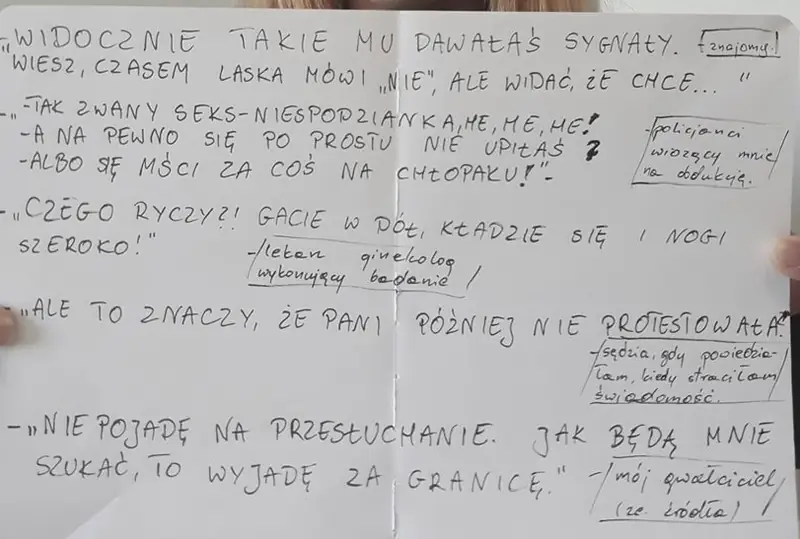 - „WIDOCZNIE TAKIE MU DAWAŁAŚ SYGNAŁY. /znajomy!/
WIESZ, CZASEM LASKA MÓWI „NIE", ALE WIDAĆ, ŻE CHCE... "
- „-TAK ZWANY SEKS-NIESPODZIANKA, HE, HE, HE!
-A NA PEWNO SIĘ PO PROSTU NIE UPIŁAŚ ?
-ALBO SIĘ MŚCI ZA COŚ NA CHŁOPAKU!"-
-/policjanci
wiozący mnie/
na obdukcję.
- „CZEGO RYCZY?! GACIE W DÓŁ, KŁADZIE SIĘ I NOGI
SZEROKO!"
-/lekarz ginekolog
wykonujący badanie/
- „ALE TO ZNACZY, ŻE PANI PÓŹNIEJ NIE PROTESTOWAŁA?"
-/sędzia, gdy powiedzia-
łam, kiedy straciłam/
świadomość.
- „NIE POJADĘ NA PRZESŁUCHANIE. JAK BĘDĄ MNIE
SZUKAĆ, TO WYJADĘ ZA GRANICĘ."
-/mój gwałciciel/
(ze źródła)/